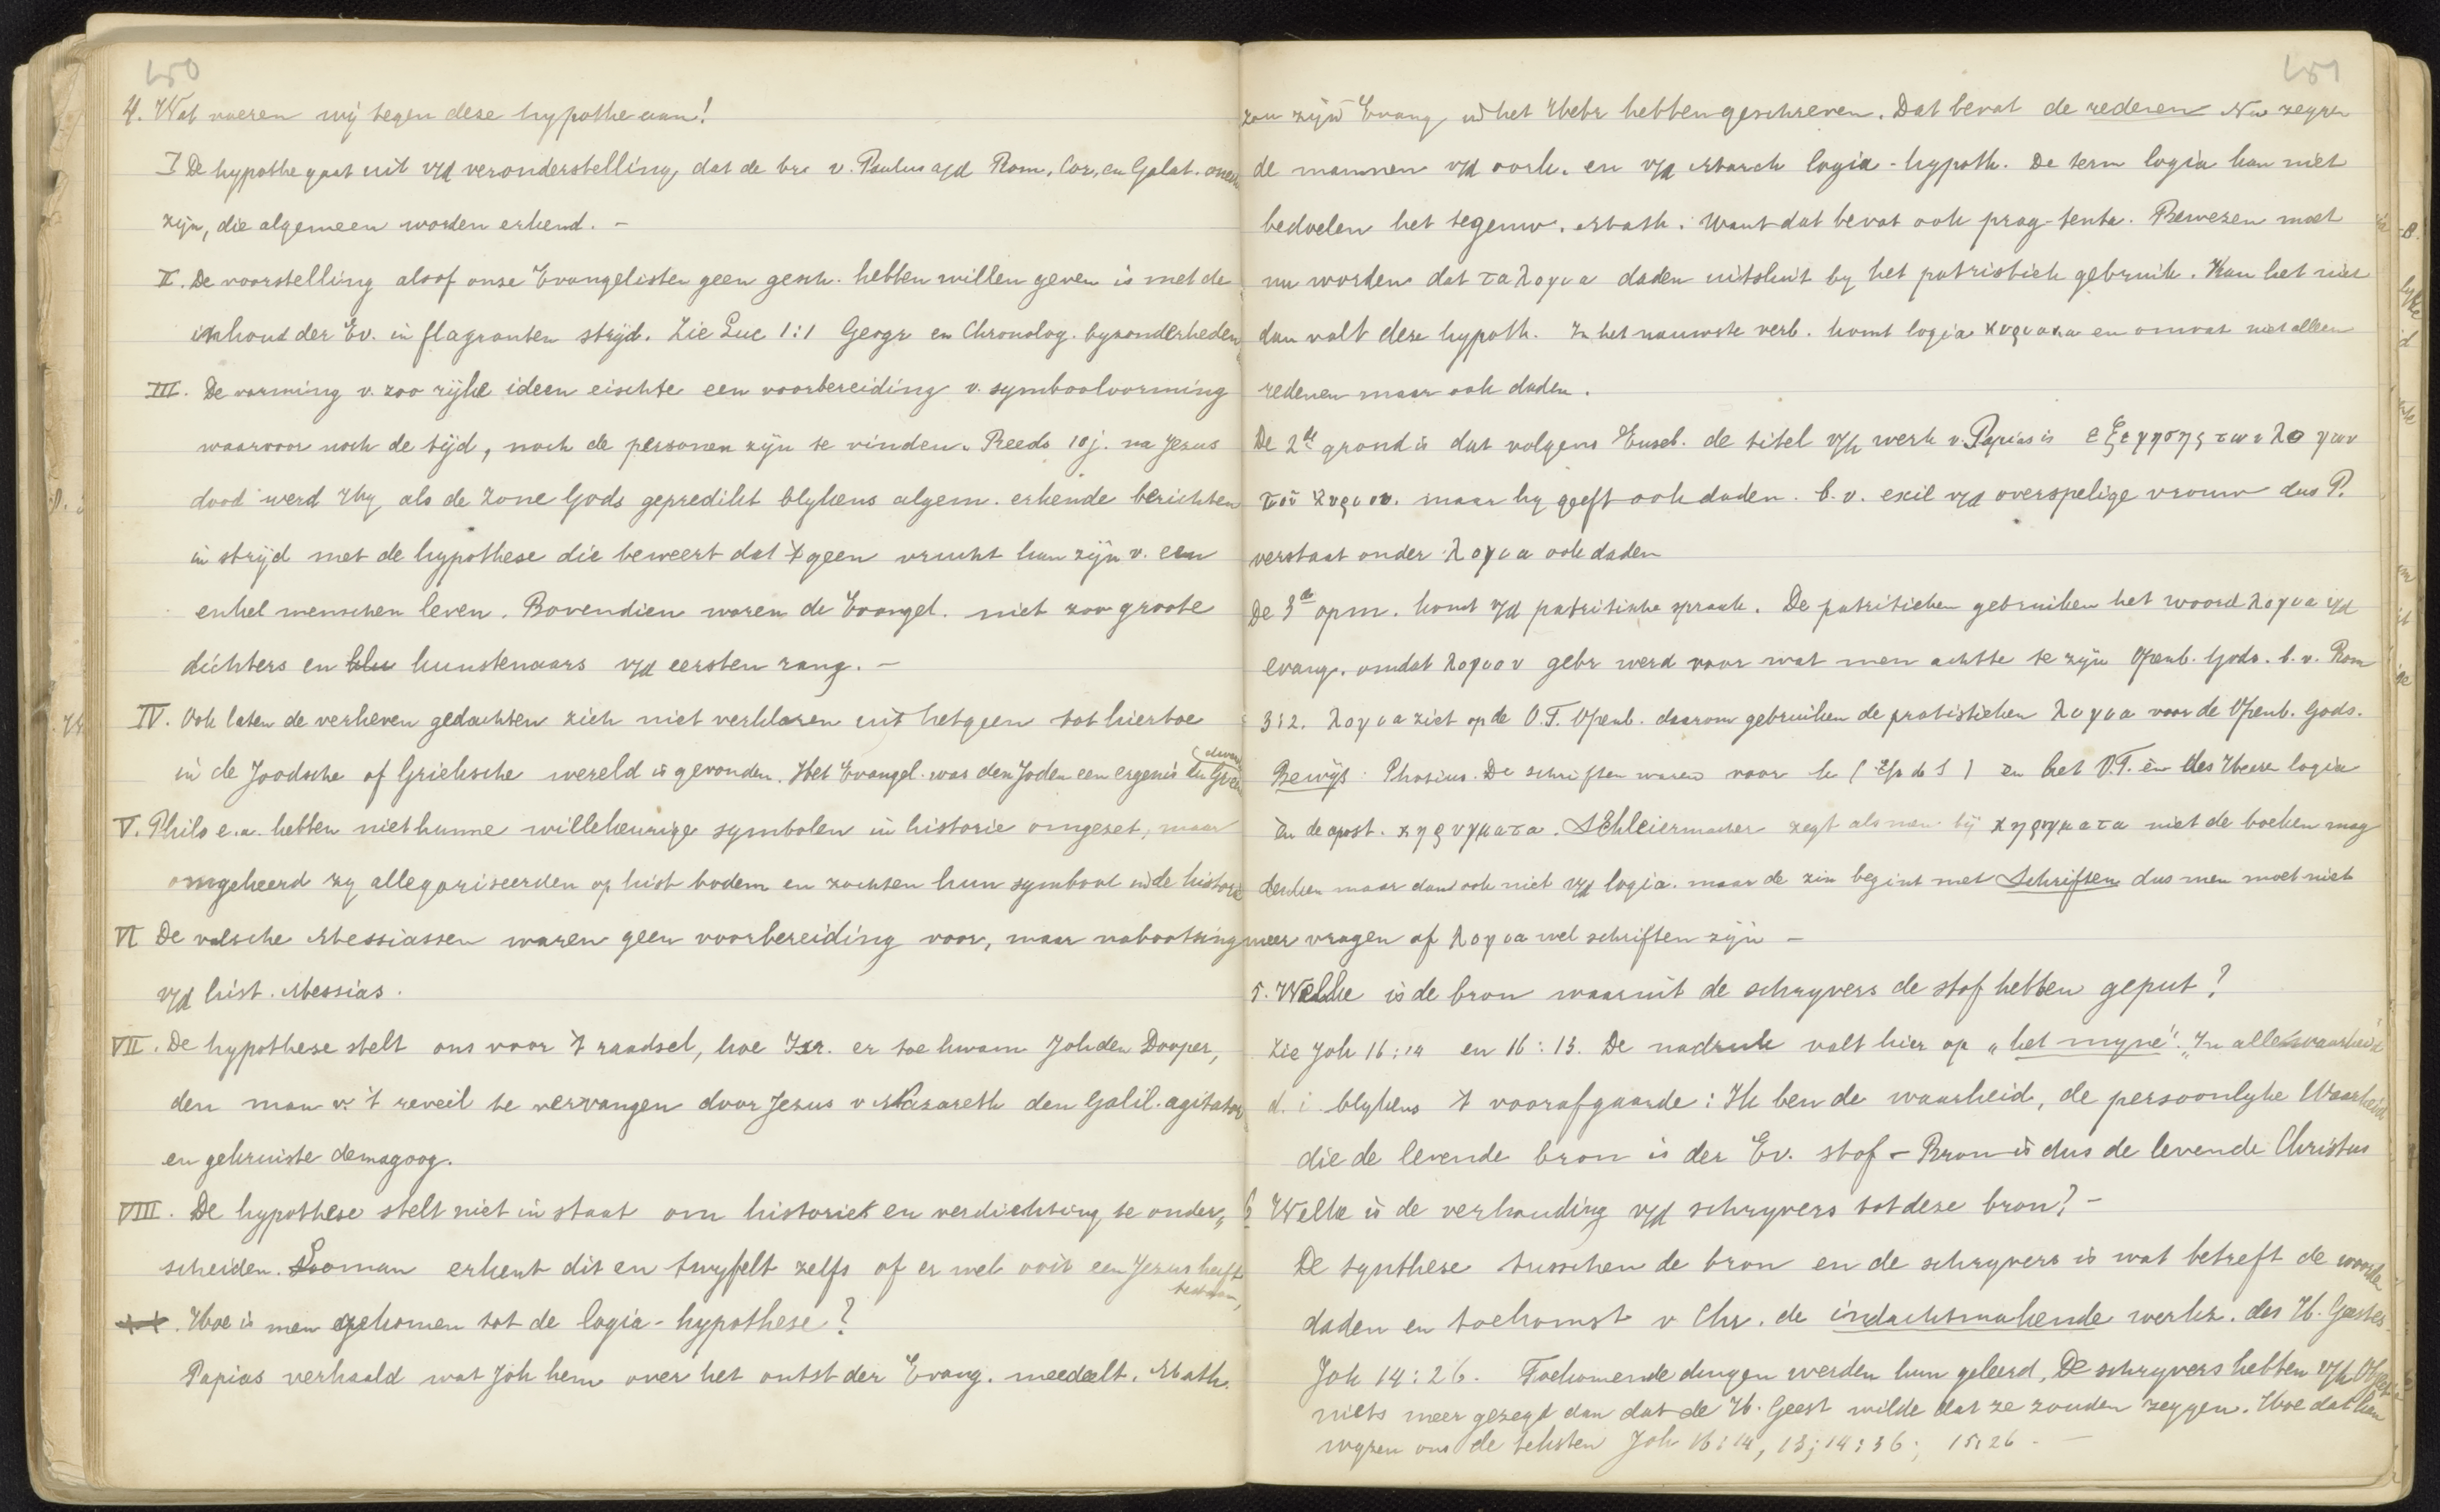 150
4. Wat voeren wij tegen deze hypothe aan!
I De hypothe gaat uit v/d veronderstelling, dat de br. v. Paulus a/d Rom, Cor, en Galat. onecht
zijn, die algemeen worden erkend. –
II. De voorstelling alsof onze Evangelisten geen gesch. hebben willen geven is met de
inhoud der Ev. in flagranten strijd. Zie Luc 1:1 Geogr en Chronolog. byzonderheden
III. De vorming v. zoo rijke ideen eischte een voorbereiding v. symboolvorming
waarvoor noch de tijd, noch de personen zijn te vinden. Reeds 10 j. na Jezus
dood werd Hy als de Zone Gods gepredikt blykens algem. erkende berichten
in strijd met de hypothese die beweert dat 't geen vrucht kan zijn v. een
enkel menschen leven. Bovendien waren de Evangel. niet zoo groote
dichters en kunstenaars v/d eersten rang. –
IV. Ook laten de verheven gedachten zich niet verklaren uit hetgeen tot hiertoe
in de Joodsche of Grieksche wereld is gevonden. Het Evangel. was den Joden een ergenis en Griek
dwaas
V. Philo e.a. hebben niet hunne willekeurige symbolen in historie omgezet, maar
omgekeerd zy allegoriseerden op hist bodem en zochten hun symbool in de historie
VI De valsche Messiassen waren geen voorbereiding voor, maar nabootsing
v/d hist. Messias.
VII. De hypothese stelt ons voor 't raadsel, hoe Isr. er toe kwam Joh den Dooper,
den man v. 't reveil te vervangen door Jezus v Nazareth den Galil. agitator
en gekruiste demagoog.
VIII. De hypothese stelt niet in staat om historie en verdichting te onder„
scheiden. Looman erkent dit en twyfelt zelfs of er wel ooit een Jezus heeft
bestaan,
. Hoe is men gekomen tot de logia-hypothese?
Papias verhaald wat Joh hem over het ontst der Evang. meedeelt. Math.
151
zou zijn Evang in het Hebr hebben geschreven. Dat bevat de redenen Nu zeggen
de mannen v/d oork. en v/d March logia-hypoth. De term logia kan niet
bedoelen het tegenw. Math. want dat bevat ook prag-tents. Bewezen moet
nu worden dat ταλογια daden uitsluit by het patristiek gebruik. Kan het niet
dan valt deze hypoth. In het nauwste verb. komt logia κυριακα en omvat niet alleen
redenen maar ook daden.
De 2de grond is dat volgens Euseb. de titel v/h werk v. Papias is εξεγησης των λογων
του κυριου. maar hy geeft ook daden. b.v. exil v/d overspelige vrouw dus P.
verstaat onder λογια ook daden
De 3e opm. komt v/d patritische spraak. De patritieken gebruiken het woord λογια v/d
evang. omdat λογιον gebr werd voor wat men achtte te zijn Openb. Gods. b.v. Rom
3:2. λογια ziet op de O.T. Openb. daarom gebruiken de pratistieken λογια voor de Openb. Gods.
Bewijs: Photius. De schriften waren voor h En het O.T. èn des Heeren logia
èn de apost. κηρυγματα. Schleiermacher zegt als men bij κηρυγματα niet de boeken mag
denken maar dan ook niet v/d logia. maar de zin begint met Schriften dus men moet niet
meer vragen of λογια wel schriften zijn –
5. Welke is de bron waaruit de schryvers de stof hebben geput?
Zie Joh 16:14 en 16:13. De nadruk valt hier op „het myne". „In alle waarheid
d. i blykens 't voorafgaande: Ik ben de waarheid, de persoonlyke Waarheid
die de levende bron is der Ev. stof – Bron is dus de levende Christus
6 Welke is de verhouding v/d schryvers tot deze bron? –
De synthese tusschen de bron en de schryvers is wat betreft de woorden
daden en toekomst v Chr. de indachtmakende werkz. des H. Geestes
Joh 14:26. Toekomende dingen werden hun geleerd, De schryvers hebben
niets meer gezegd dan dat de H. Geest wilde dat ze zouden zeggen. Hoe dat kan
wyzen ons de teksten Joh 16:14, 13; 14:36; 15:26. –